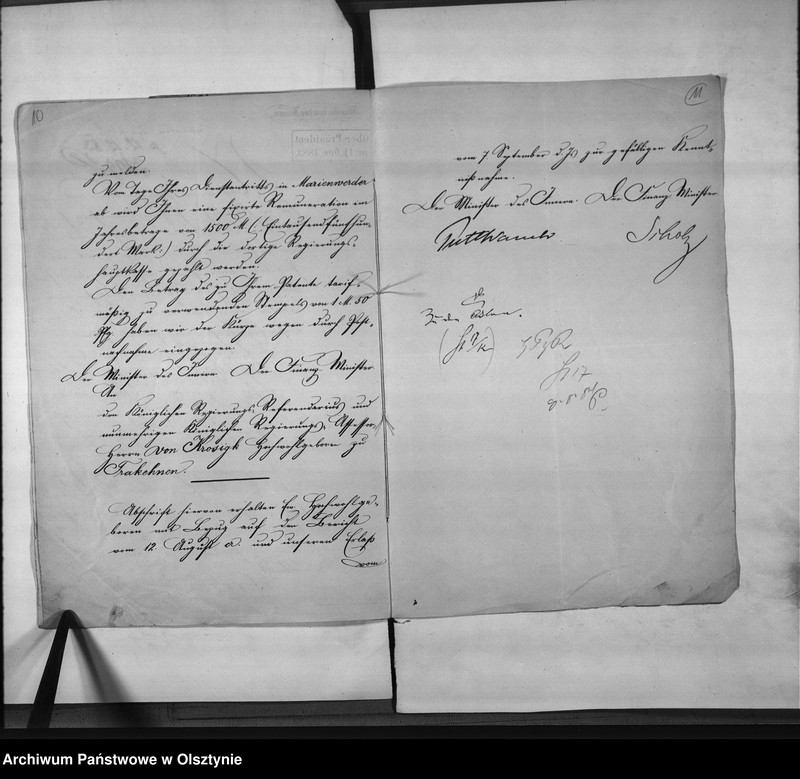 10
zu melden.
Vom Tage Ihres Diensteintritts in Marienwerder
ab wird Ihnen eine fixirte Remuneration im
Jahresbetrage von 1500 M (: Eintausendfünfhun-
dert Mark :) durch die dortige Regierungs-
hauptkasse gezahlt werden.
Den Betrag des zu Ihrem Patente tarif-
mäßig zu verwendenden Stempels von 1 M. 50
Pf. haben wir der Kürze wegen durch Post-
nachnahme eingezogen.
Der Minister des Innern Der Finanz Minister
An
den Königlichen Regierungs-Referendarius und
nunmehrigen Königlichen Regierungs-Assessor
Herrn von Krosigk Hochwohlgeboren zu
Trakehnen.
Abschrift hiervon erhalten Ew. Hochwohlge-
boren mit Bezug auf den Bericht
vom 12. August a. und unseren Erlaß
vom
11
vom 7 September d. Js zur gefälligen Kennt-
nißnahme.
Der Minister des Innern. Der Finanz Minister
Puttkamer Scholz
Zu den Akten.
Archiwum Państwowe w Olsztynie